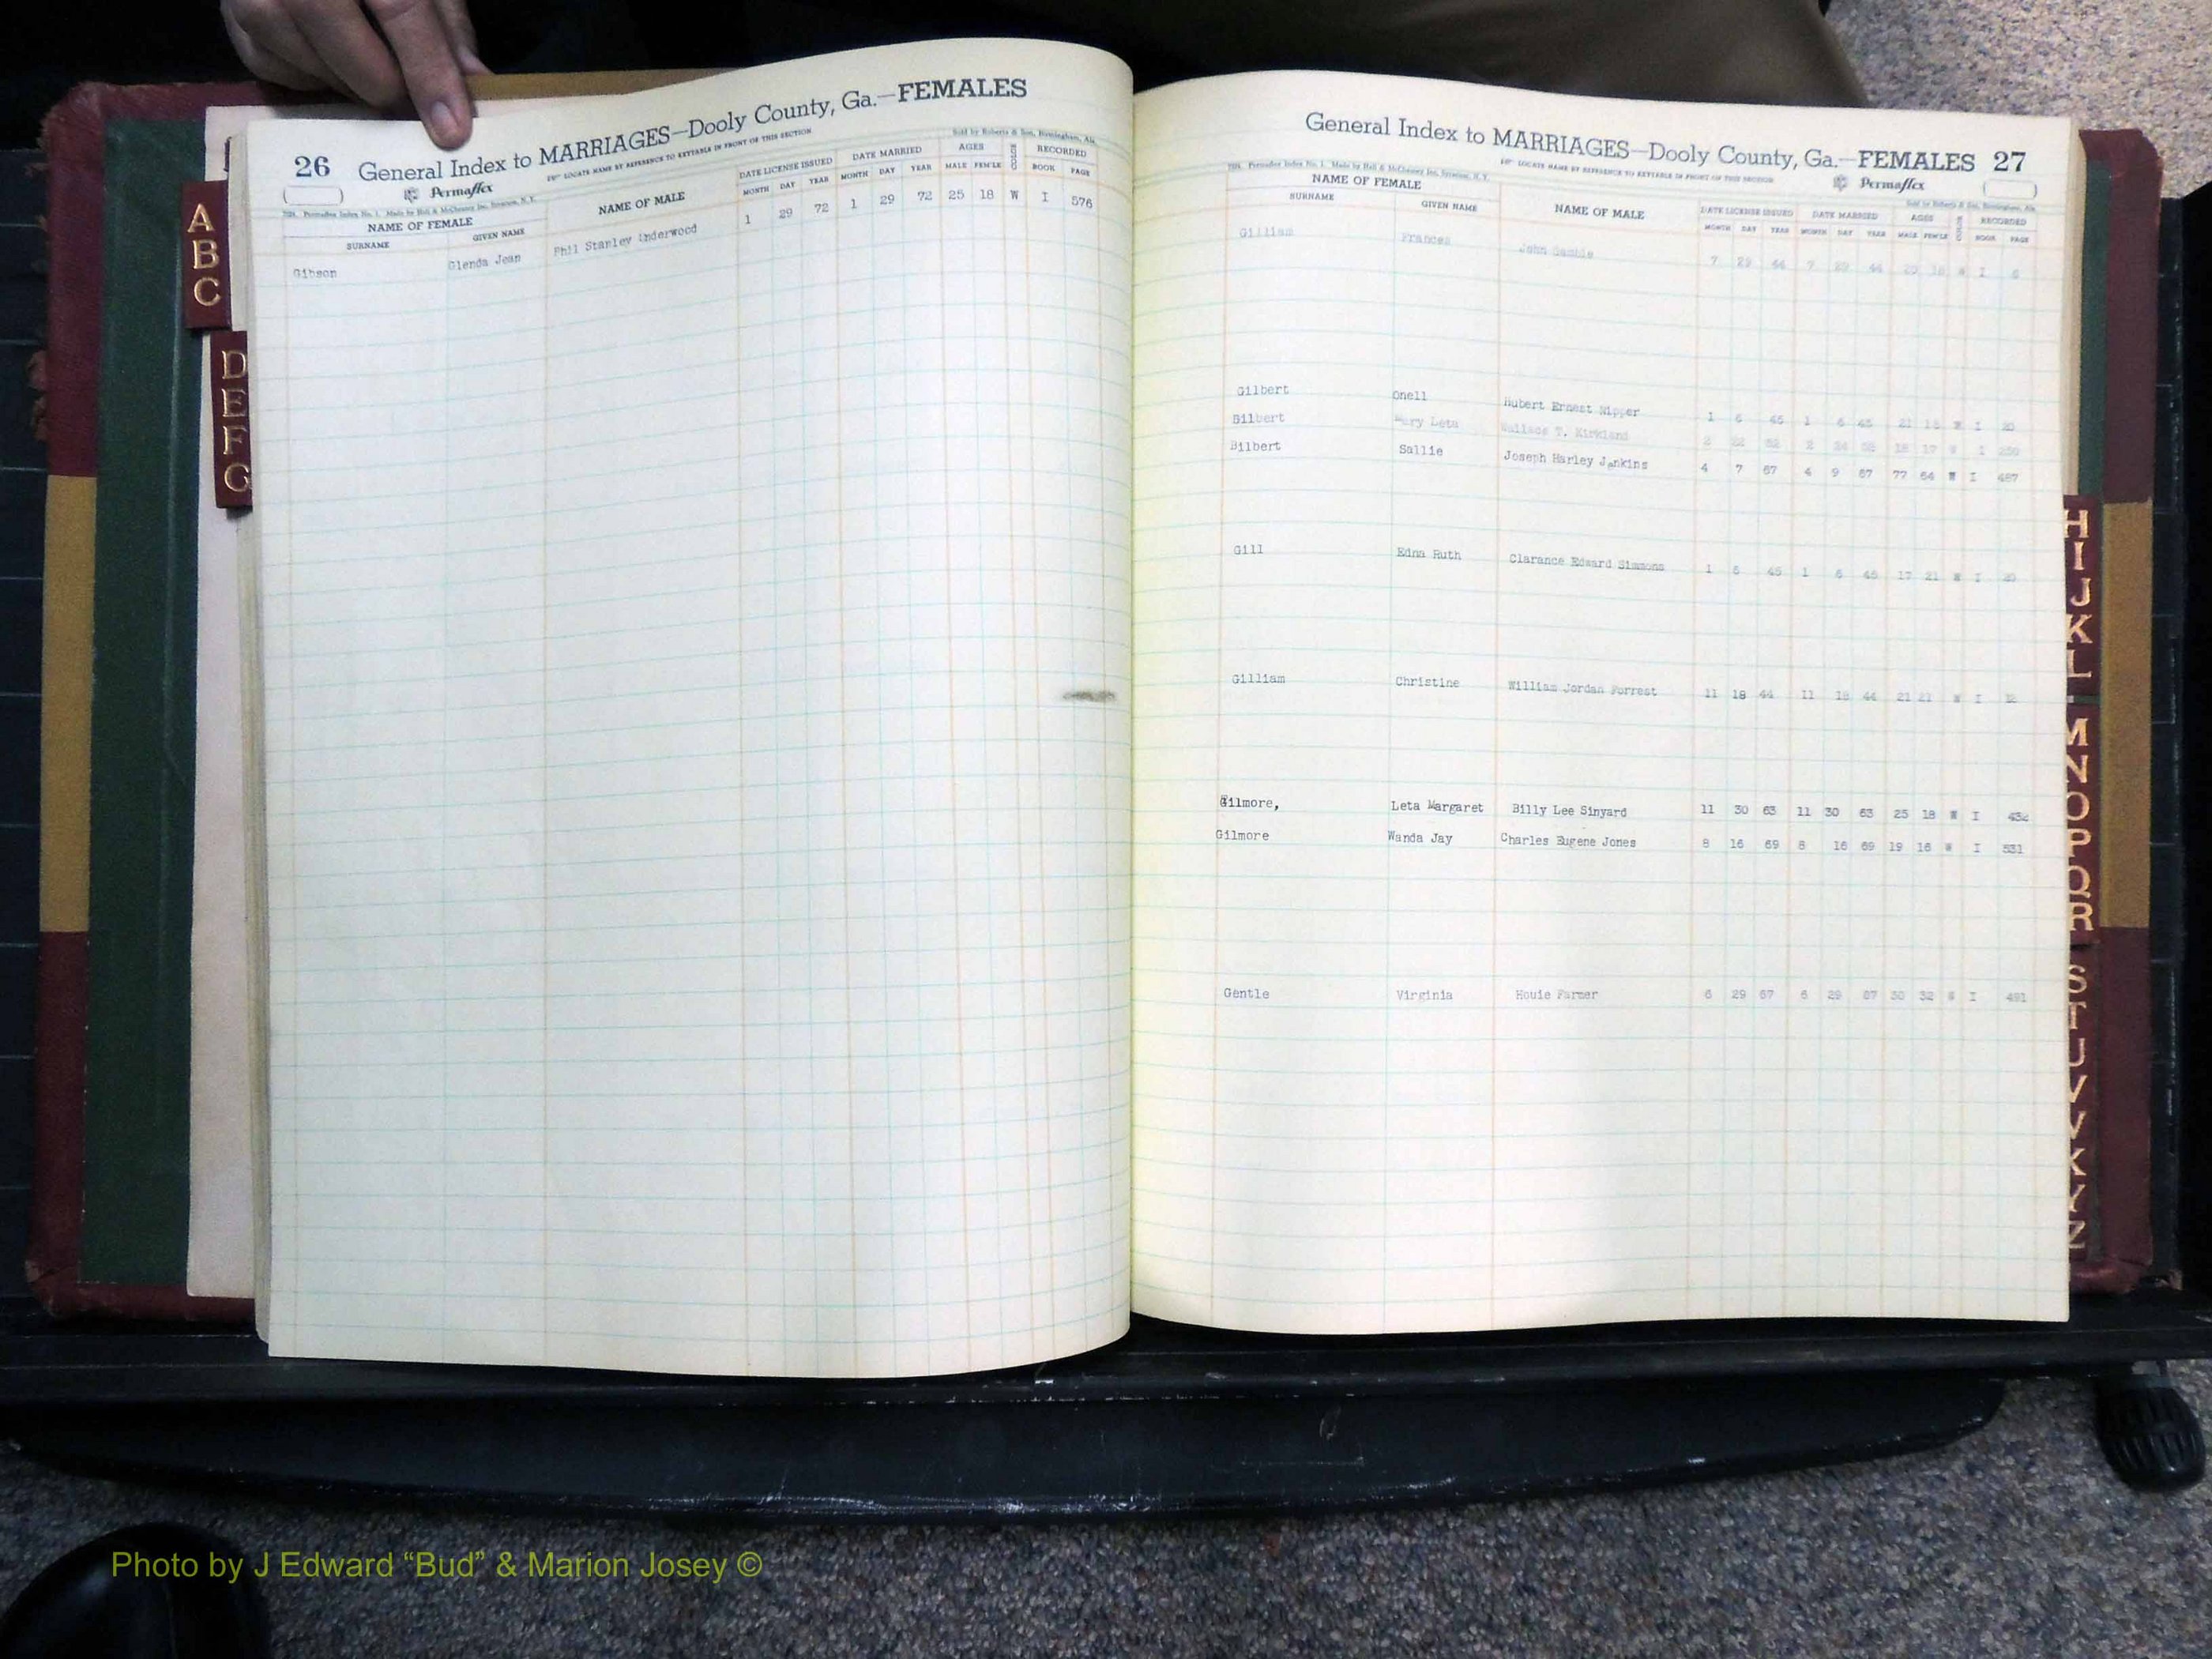 26 General Index to MARRIAGES—Dooly County, Ga.—FEMALES
LOCATE NAME BY REFERENCE TO KEYTABLE IN FRONT OF THIS SECTION
Permaflex
Sold by Roberts & Son, Birmingham, Ala.
NAME OF FEMALE NAME OF MALE DATE LICENSE ISSUED DATE MARRIED AGES COLOR RECORDED
SURNAME GIVEN NAME MONTH DAY YEAR MONTH DAY YEAR MALE FEM'LE BOOK PAGE
Gibson Glenda Jean Phil Stanley Underwood 1 29 72 1 29 72 25 18 W I 576
A
B
C
D
E
F
G
General Index to MARRIAGES—Dooly County, Ga.—FEMALES 27
LOCATE NAME BY REFERENCE TO KEYTABLE IN FRONT OF THIS SECTION
Permaflex
Sold by Roberts & Son, Birmingham, Ala.
NAME OF FEMALE NAME OF MALE DATE LICENSE ISSUED DATE MARRIED AGES COLOR RECORDED
SURNAME GIVEN NAME MONTH DAY YEAR MONTH DAY YEAR MALE FEM'LE BOOK PAGE
Gilliam Frances John 7 29 44 7 29 44 20 18 W I 6
Gilbert Onell Hubert Ernest Nipper 1 6 45 1 6 45 21 18 W I 20
Gilbert Mary Leta Wallace T. Kirkland 2 22 52 2 24 52 18 17 W I 250
Bilbert Sallie Joseph Harley Jenkins 4 7 67 4 9 67 77 64 W I 487
Gill Edna Ruth Clarance Edward Simmons 1 6 45 1 6 45 17 21 W I 20
Gilliam Christine William Jordan Forrest 11 18 44 11 18 44 21 21 W I 12
Gilmore, Leta Margaret Billy Lee Sinyard 11 30 63 11 30 63 25 18 W I 432
Gilmore Wanda Jay Charles Eugene Jones 8 16 69 8 16 69 19 16 W I 531
Gentle Virginia Houie Farmer 6 29 67 6 29 67 30 32 W I 491
H
I
J
K
L
M
N
O
P
Q
R
S
T
U
V
Y
Z
Photo by J Edward “Bud” & Marion Josey ©